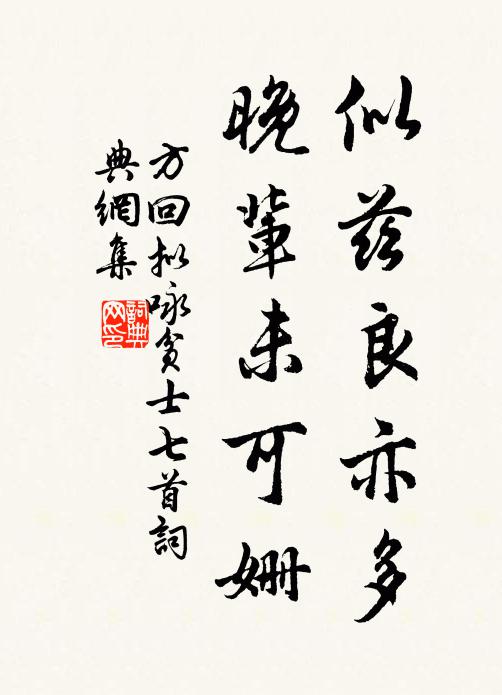 似茲良亦多
晚輩未可姍
方回拟咏貧士七首詞
典網集
詞典
网印